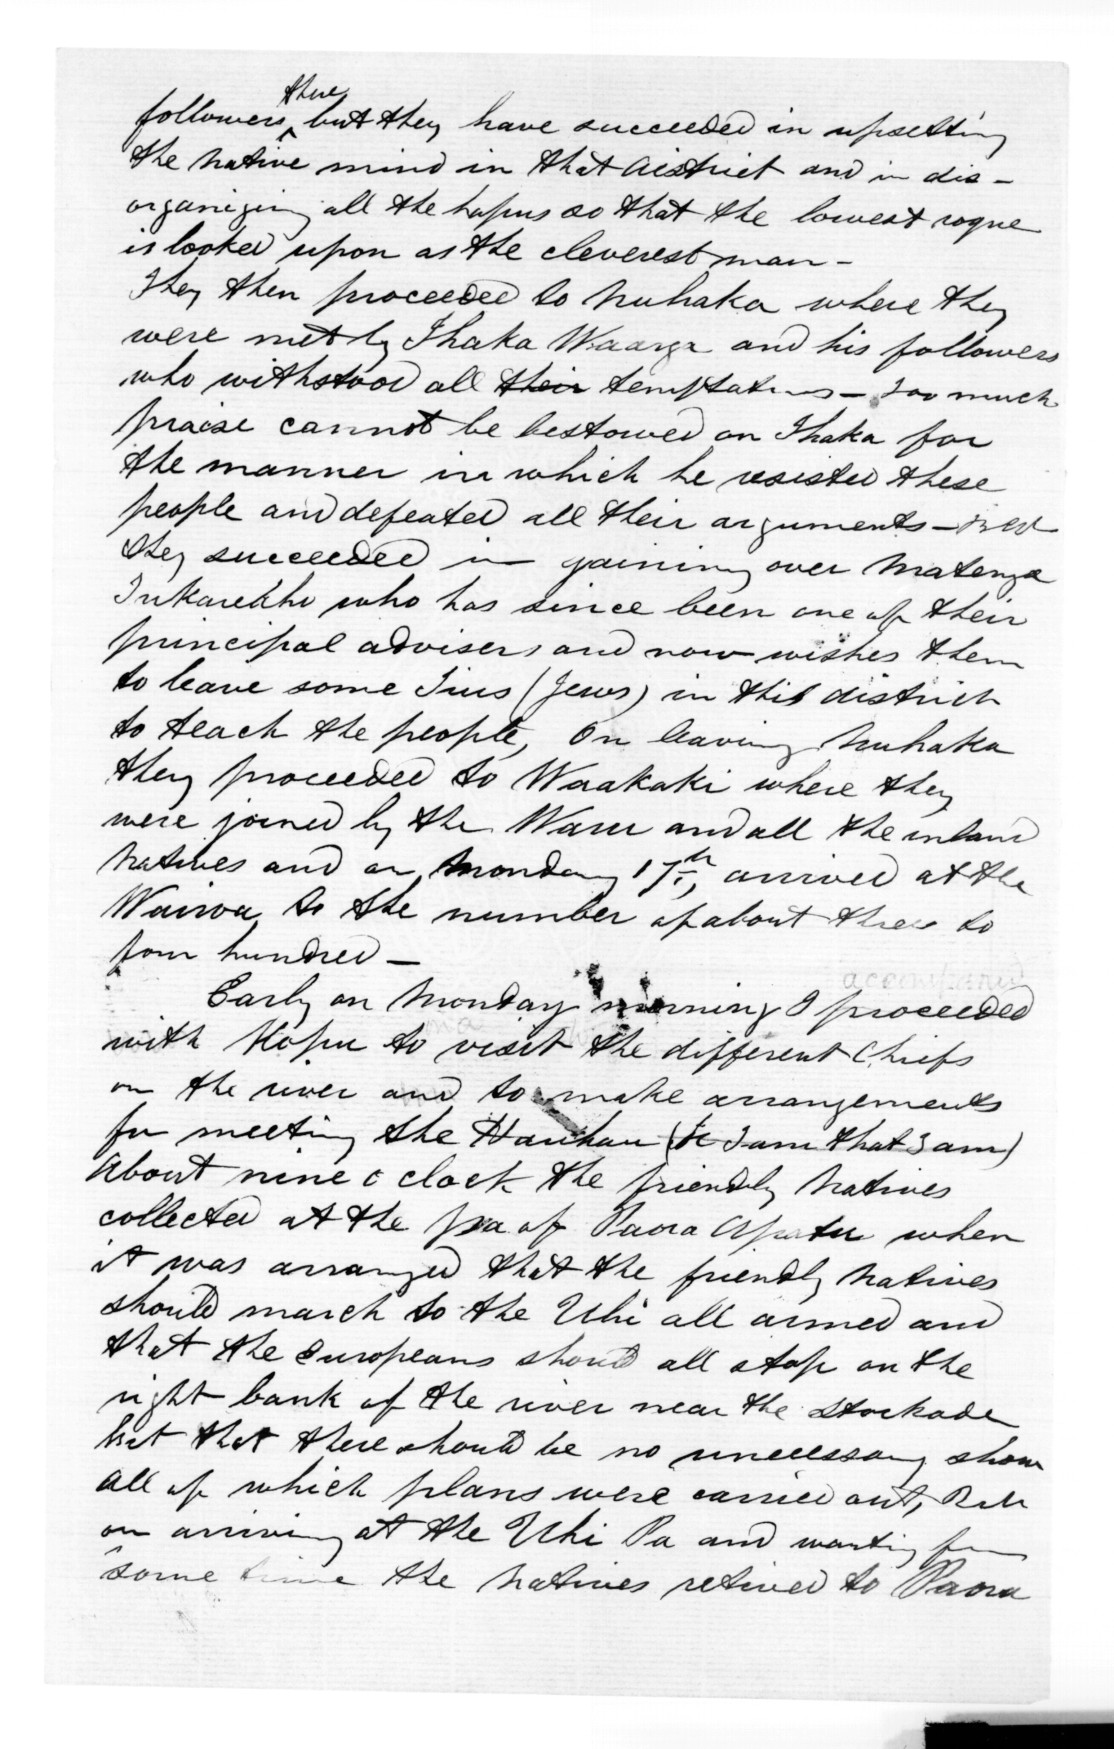 there
followers, but they have succeeded in upsetting
the native mind in that district and in dis-
organizing all the hapus so that the lowest rogue
is looked upon as the cleverest man -
They then proceeded to Nuhaka where they
were met by Ihaka Waanga and his followers
who withstood all their temptations - Too much
praise cannot be bestowed on Ihaka for
the manner in which he resisted these
people and defeated all their arguments - But
they succeeded in gaining over Matenga
Tukareaho who has since been one of their
principal advisers and now wishes them
to leave some Tius (Jews) in this district
to teach the people, On leaving Nuhaka
they proceeded to Waakaki where they
were joined by the Waru and all the inland
Natives and on Monday 17th, arrived at the
Wairoa, to the number of about three to
four hundred -
Early on Monday morning I proceeded
with Kopu to visit the different Chiefs
on the river and to make arrangements
for meeting the Hauhau ( I am that I am)
About nine o clock the friendly Natives
collected at the pa of Paora Apatu when
it was arranged that the friendly natives
should march to the Uhi all armed and
that the Europeans should all stop on the
right bank of the river near the stockade
but that there should be no unnecessary show
all of which plans were carried out, But
on arriving at the Uhi Pa and waiting for
some time the Natives retired to Paora